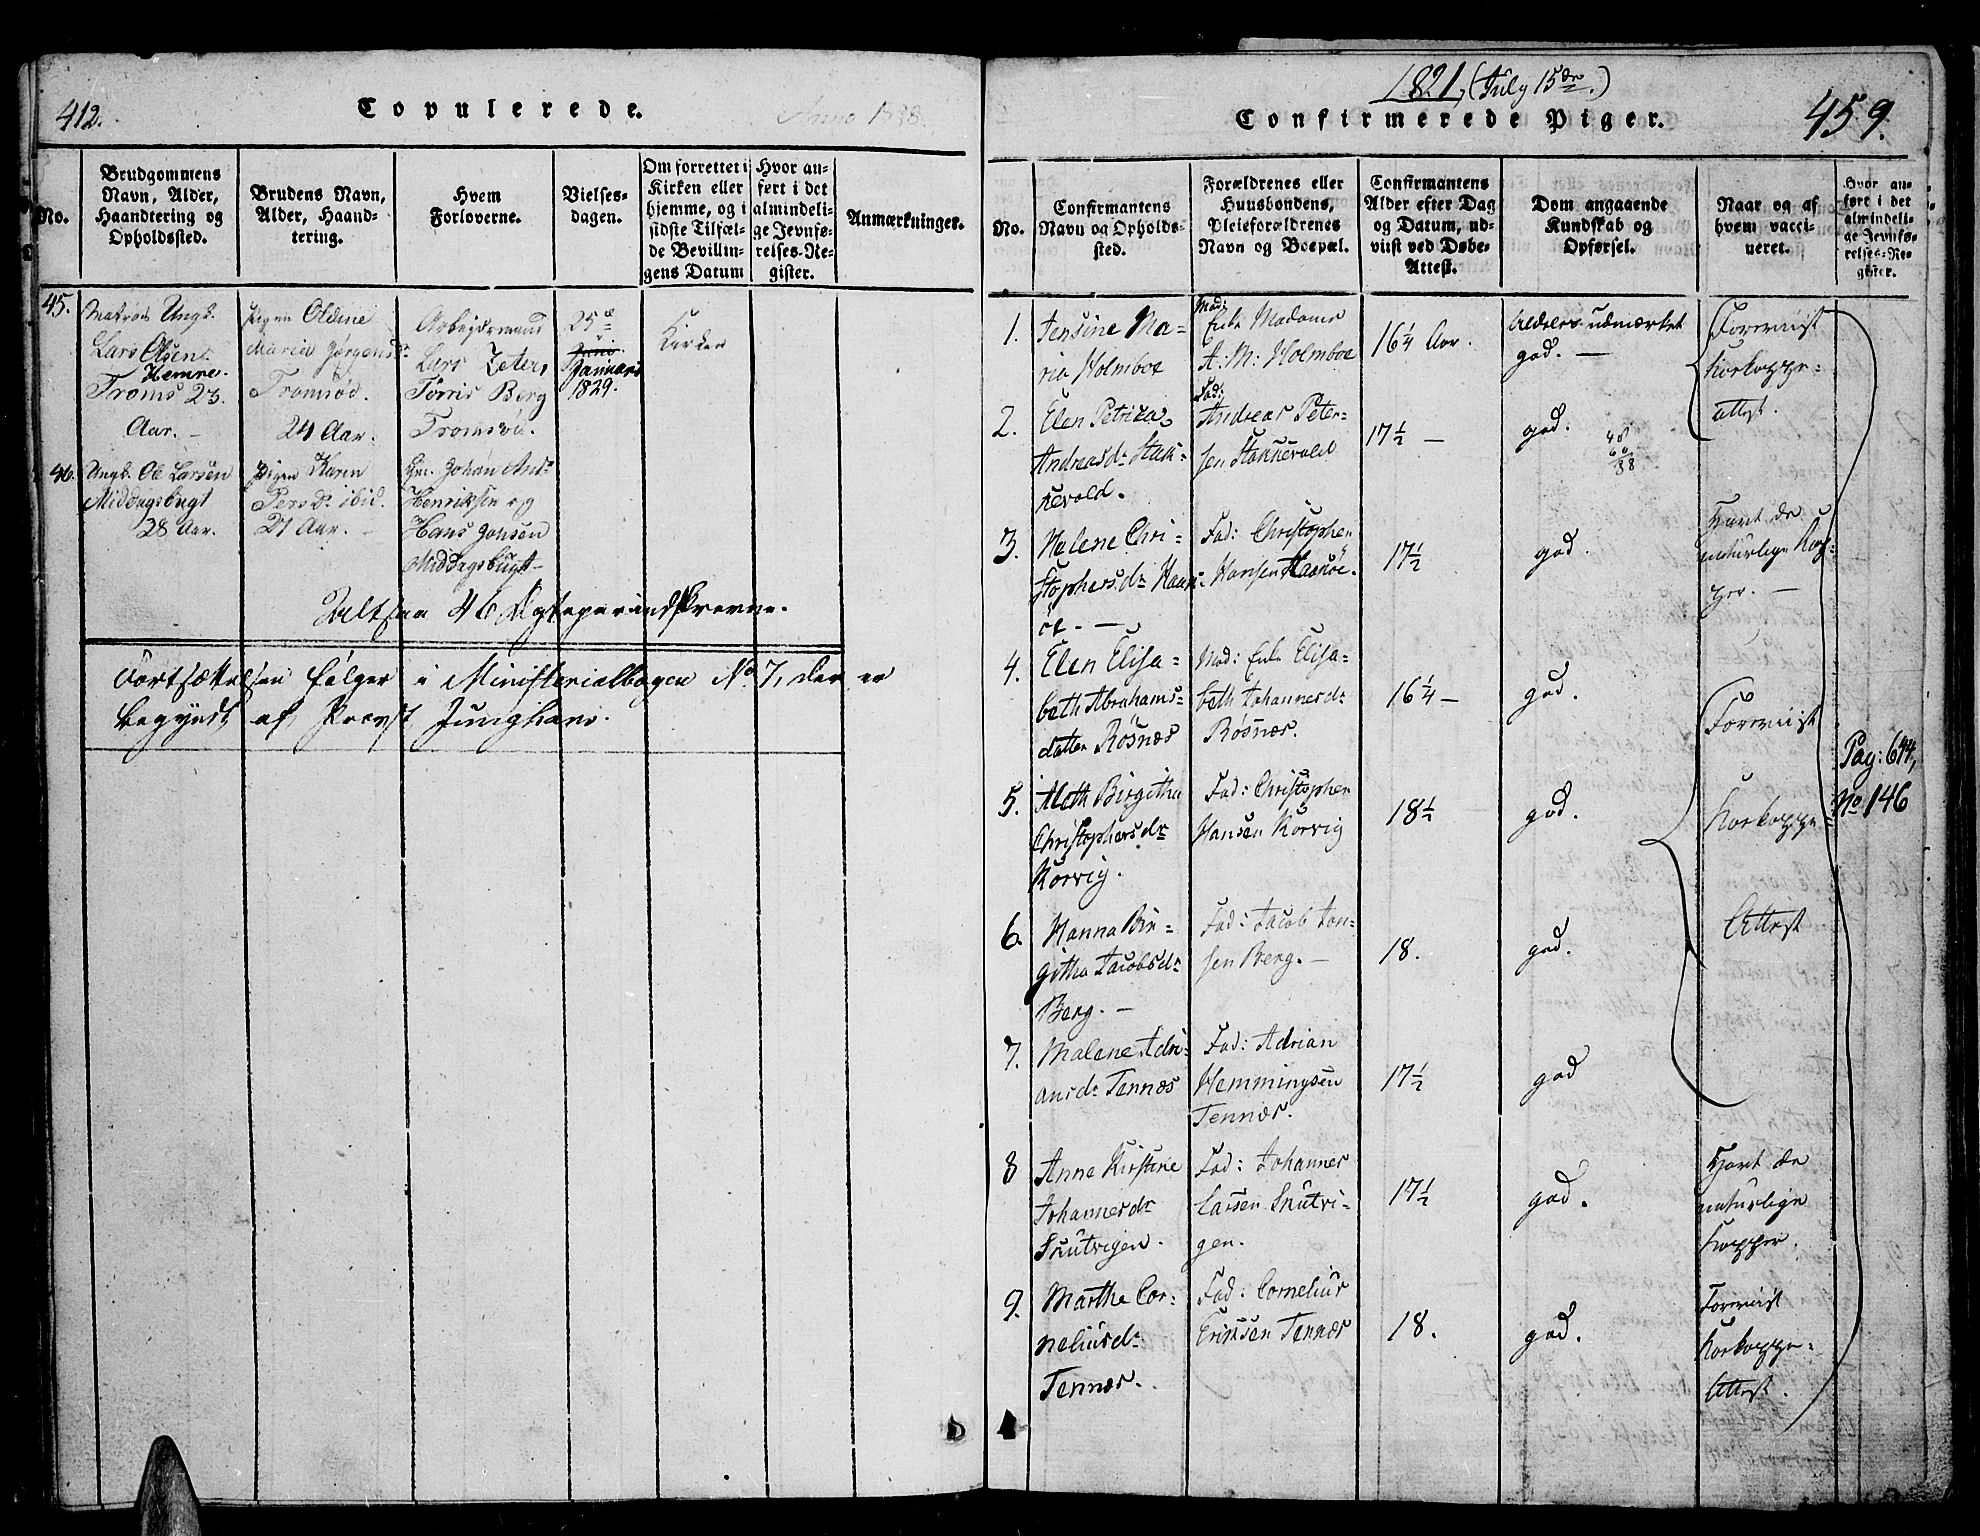 412.
Copulerede.
No.
Brudgommens
Navn, Alder,
Haandtering og
Opholdssted.
Brudens Navn,
Alder, Haand-
tering.
Hvem
Forloverne.
Vielses-
dagen.
Om forrettet i
Kirken eller
hjemme, og i
sidste Tilfæl-
de Bevillin-
gens Datum
Hvor an-
ført i det
almindeli-
ge Jevnfø-
relses-Re-
gister.
Anmærkninger.
45.
Matros Ungk.
Lars Olsen
Hemne.
Troms 23.
Aar. -
Pigen Oldine
Maria Jørgensd.
Tromsød.
24 Aar.
Arbejdsmand
Lars Zeter,
Törris Berg
Tromsöe.
25d
Juni
Januar
1829.
Kirken
46.
Ungk. Ole Larsen
Middagsbugt
28 Aar.
Pigen Karen
Persdr ibid.
21 Aar. -
Johan And.
Henriksen og
Hans Jonsen
Middagsbugt
Zeltsaa 46 Egtepar indskrevne.
Fortsættelsen følger i Ministerialbogen No 7, der er
begyndt af Provst Junghans.
1821, (July 15de.)
459.
Confirmerede Piger.
No.
Confirmantens
Navn og Opholds-
sted.
Forældrenes eller
Huusbondens,
Pleieforældrenes
Navn og Boepæl.
Confirmantens
Alder efter Dag
og Datum, ud-
viist ved Døbe-
Attest.
Dom angaaende
Kundskab og
Opførsel.
Naar og af
hvem vacci-
neret.
Hvor an-
ført i det
almindeli-
ge Jevnfø-
relses-Re-
gister.
1.
Jensine Ma-
ria Holmboe
Mod:
Enke Madame
A: M: Holmboe
16 1/4 Aar.
Aldeles udmærket
god. -
Foreviist
Kokoppe-
attest.
2.
Elen Petrica
Andreasdr Stok-
kevold.
Fad:
Andreas Peter-
sen Stokkevold
17 1/2 -
god.
3.
Helene Chri-
stophersdr Haak-
öe. -
Fad: Christopher
Hansen Haaköe.
17 1/2
god.
Havt de
naturlige Kop-
per. -
4.
Elen Elisa-
beth Abrahams-
datter Rösnæs
Mod: Enke Elisa-
beth Johannesdr
Røsnæs.
16 1/4 -
god.
Foreviist
5.
Aleth Birgitha
Christophersdr
Korvig.
Fad: Christopher
Hansen Korvig
18 1/2
god.
Kokoppe
Pag: 644,
No 146
6.
Hanna Bir-
githa Jacobsdr
Berg. -
Fad: Jacob Jon-
sen Berg. -
18.
god.
Attest
7.
Malene Adri-
ansdr Tennæs
Fad: Adrian
Hemmingsen
Tennæs.
17 1/2
god
8
Anne Kirstine
Johannesdr
Skutvigen.
Fad: Johannes
Larsen Skutvi-
gen.
17 1/2
god.
Havt de
naturlige
Kopper.
9.
Marthe Cor-
neliusdr
Tennæs.
Fad: Cornelius
Erichsen Tennæs
18.
god.
Foreviist
Kokoppe-
Attest.